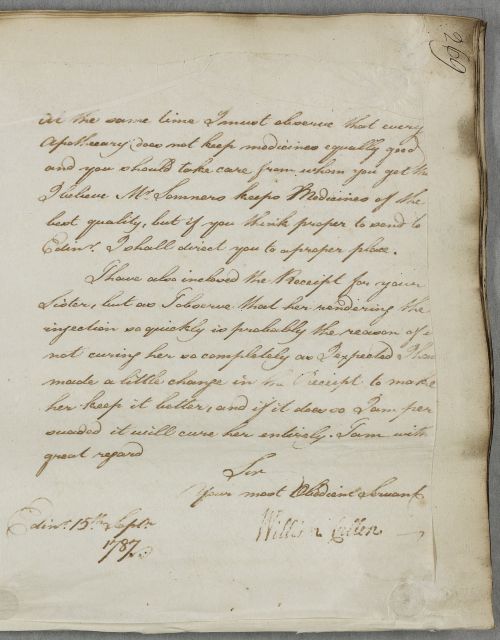 269
At the same time I must observe that every
Apothecary does not keep medicines equally good
and you should take care from whom you get th
I believe Mr. Somners keeps Medicines of the
best quality, but if you think proper to send to
Edinr. I shall direct you to a proper place.
I have also inclosed the Receipt for your
Sister, but as I observe that her rendering the
injection so quickly is probably the reason of i
not curing her so completely as I expected I hav
made a little change in the Receipt to make
her keep it better, and if it does so I am per
suaded it will cure her entirely. I am with
great regard
Sir
Your most Obedient Servant
William Cullen
Edinr. 15th Septr.
1787.